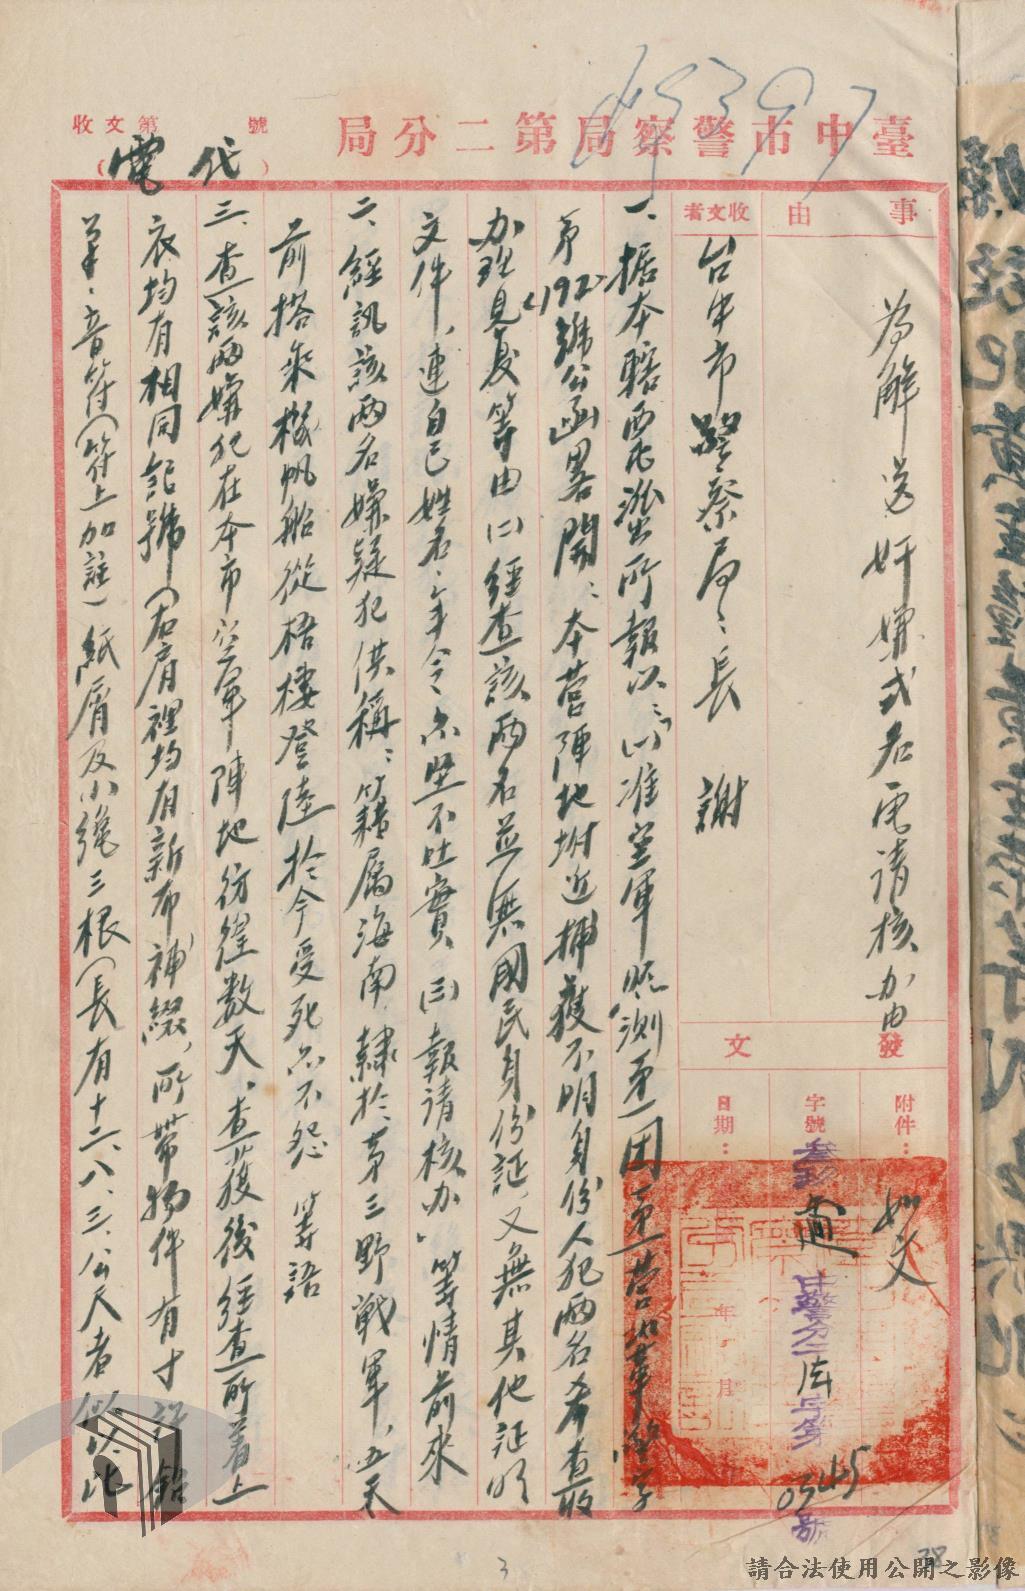 臺中市警察局第二分局
收文第 號
(代電)
事由
為解送奸嫌弍名電請核办由
收文者
台中市警察局局長 謝
發文
附件：如文
字號
中警分二法字第
03445號
日期： 年 月 日
一、據本轄西屯派出所報以：「㈠准空軍照測第一團第一營
第(192)號公函畧開：本營陣地坿近捕獲不明身份人犯兩名希查收
办理見复等由㈡經查該兩名並無國民身份証，又無其他証明
文件，連自己姓名、年令亦坚不吐實㈢報請核办」等情前來
二、經訊該两名嫌疑犯供稱：籍屬海南，隷於第三野戰軍，五天
前搭乘機帆船從梧棲登陸於今受死亦不怨 等語
三、查該兩嫌犯在本市空軍陣地彷徨数天，查獲後經查所著上
衣均有相同記號(右肩裡均有新布補綴，所帶物件有寸
筆、音符(符上加註)紙屑及小繩三根(長有十二、八、三、公尺者似以此
3
38
請合法使用公開之影像